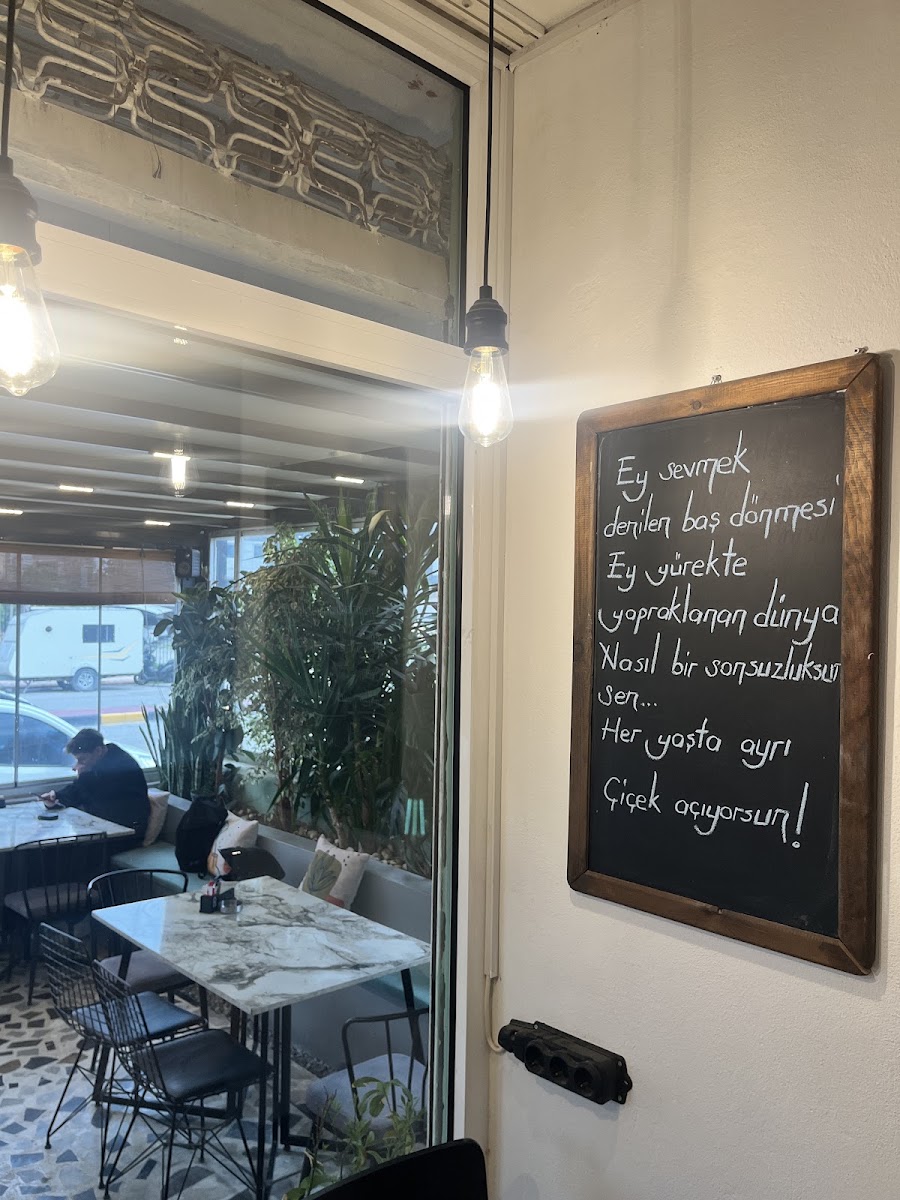 Ey sevmek
denilen baş dönmesi
Ey yürekte
yapraklanan dünya
Nasıl bir sonsuzluksun
sen...
Her yaşta ayrı
Çiçek açıyorsun!